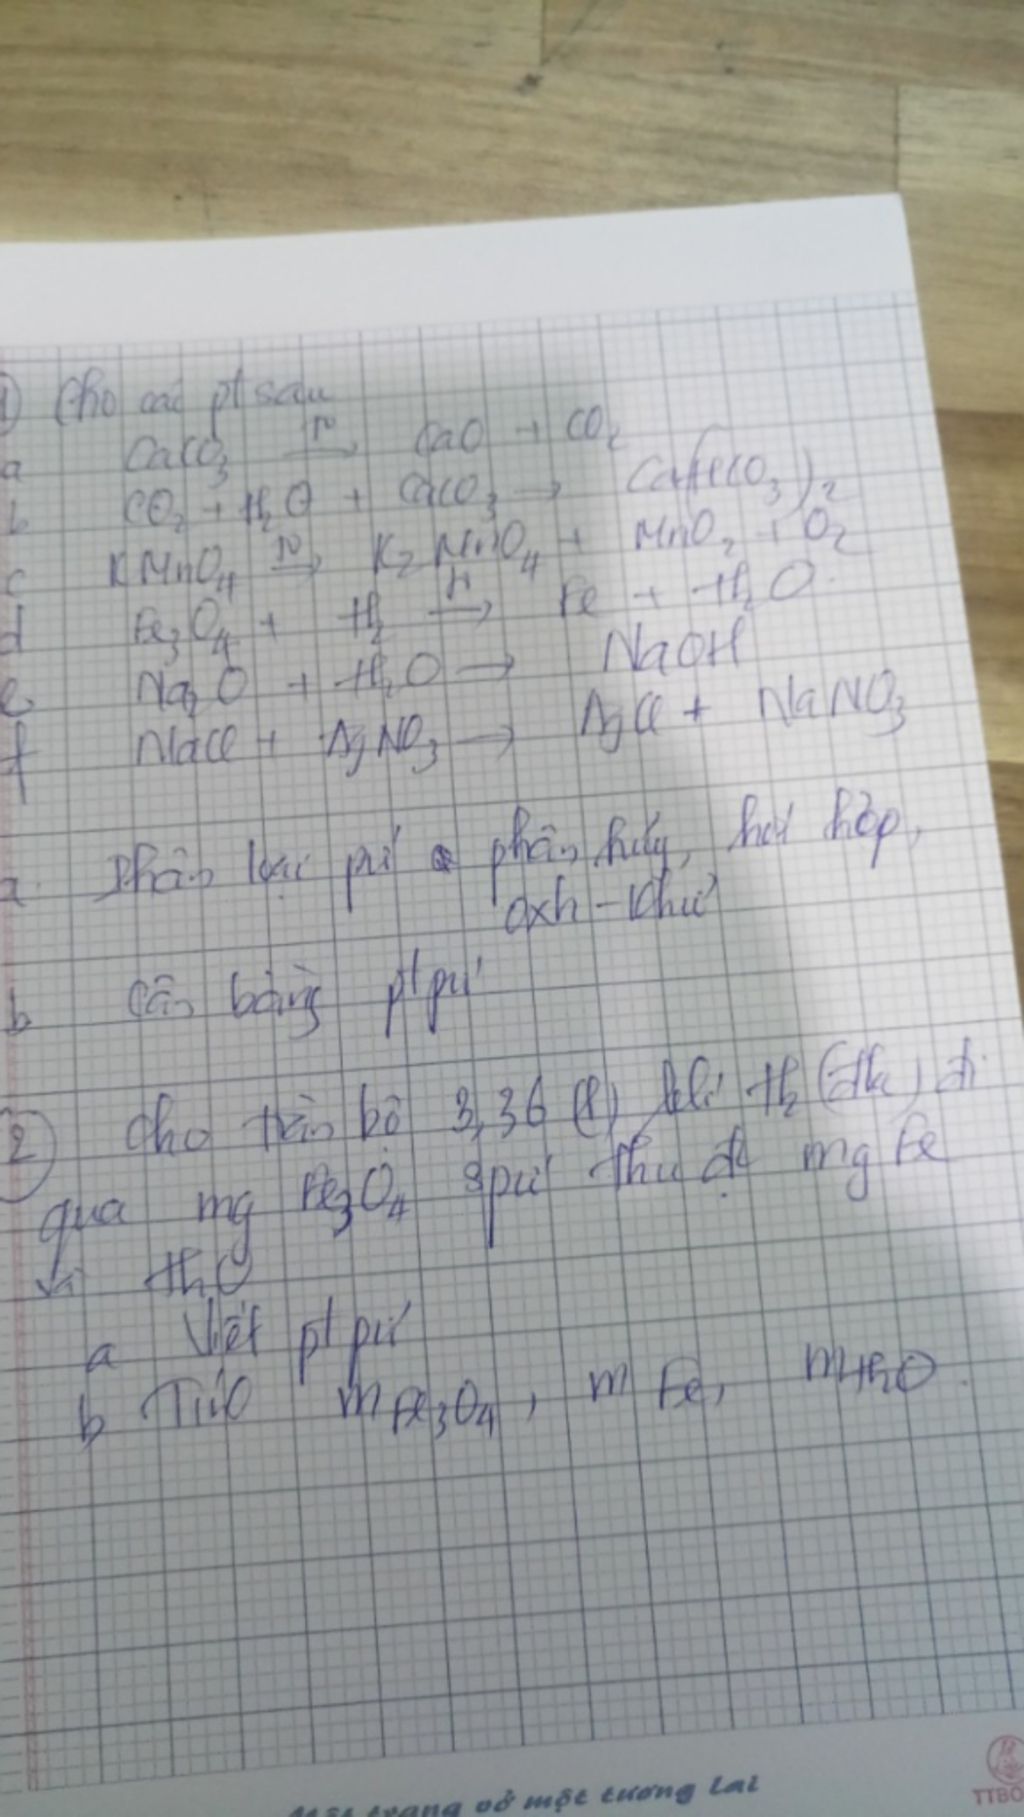 1) Cho các pt sau
a CaCO3 to→ CaO + CO2
b CO2 + H2O + CaCO3 → Ca(HCO3)2
c KMnO4 to→ K2MnO4 + MnO2 + O2
d Fe3O4 + H2 to→ Fe + H2O
e Na2O + H2O → NaOH
f NaCl + AgNO3 → AgCl + NaNO3
a. Phân loại pứ phân hủy, hoá hợp,
oxh - khử
b Cân bằng ptpứ
2 Cho toàn bộ 3,36 (l) khí H2 (đktc) đi
qua mg Fe3O4 spứ thu đc mg Fe
và H2O
a Viết ptpứ
b Tính mFe3O4, mFe, mH2O.
Một trang vở một tương lai
TTBO